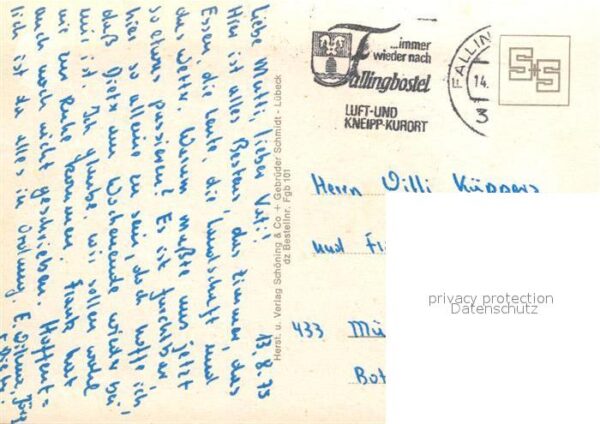 13.8.75
Liebe Mutti, lieber Vati!
Hier ist alles Bestens, das Zimmer, das
Essen, die Leute, die Landschaft und
das Wetter. Warum mußte uns jetzt
sowas passieren? Es ist furchtbar
hier so alleine zu sein, doch hoffe ich,
daß Dieter am Wochenende wieder bei
mir ist. Ich glaube, wir sollen wohl
nie zur Ruhe kommen. Frank hat
auch noch nicht geschrieben. Hoffent=
lich ist da alles in Ordnung. E.
Herst. u. Verlag Schöning & Co + Gebrüder Schmidt - Lübeck
dz Bestellnr. Fgb 101
...immer
wieder nach
Fallingbostel
LUFT-UND
KNEIPP-KURORT
FALLIN
14.
3
S+S
Herrn Willi Küppers
und F
433 Mü
Bot
privacy protection
Datenschutz